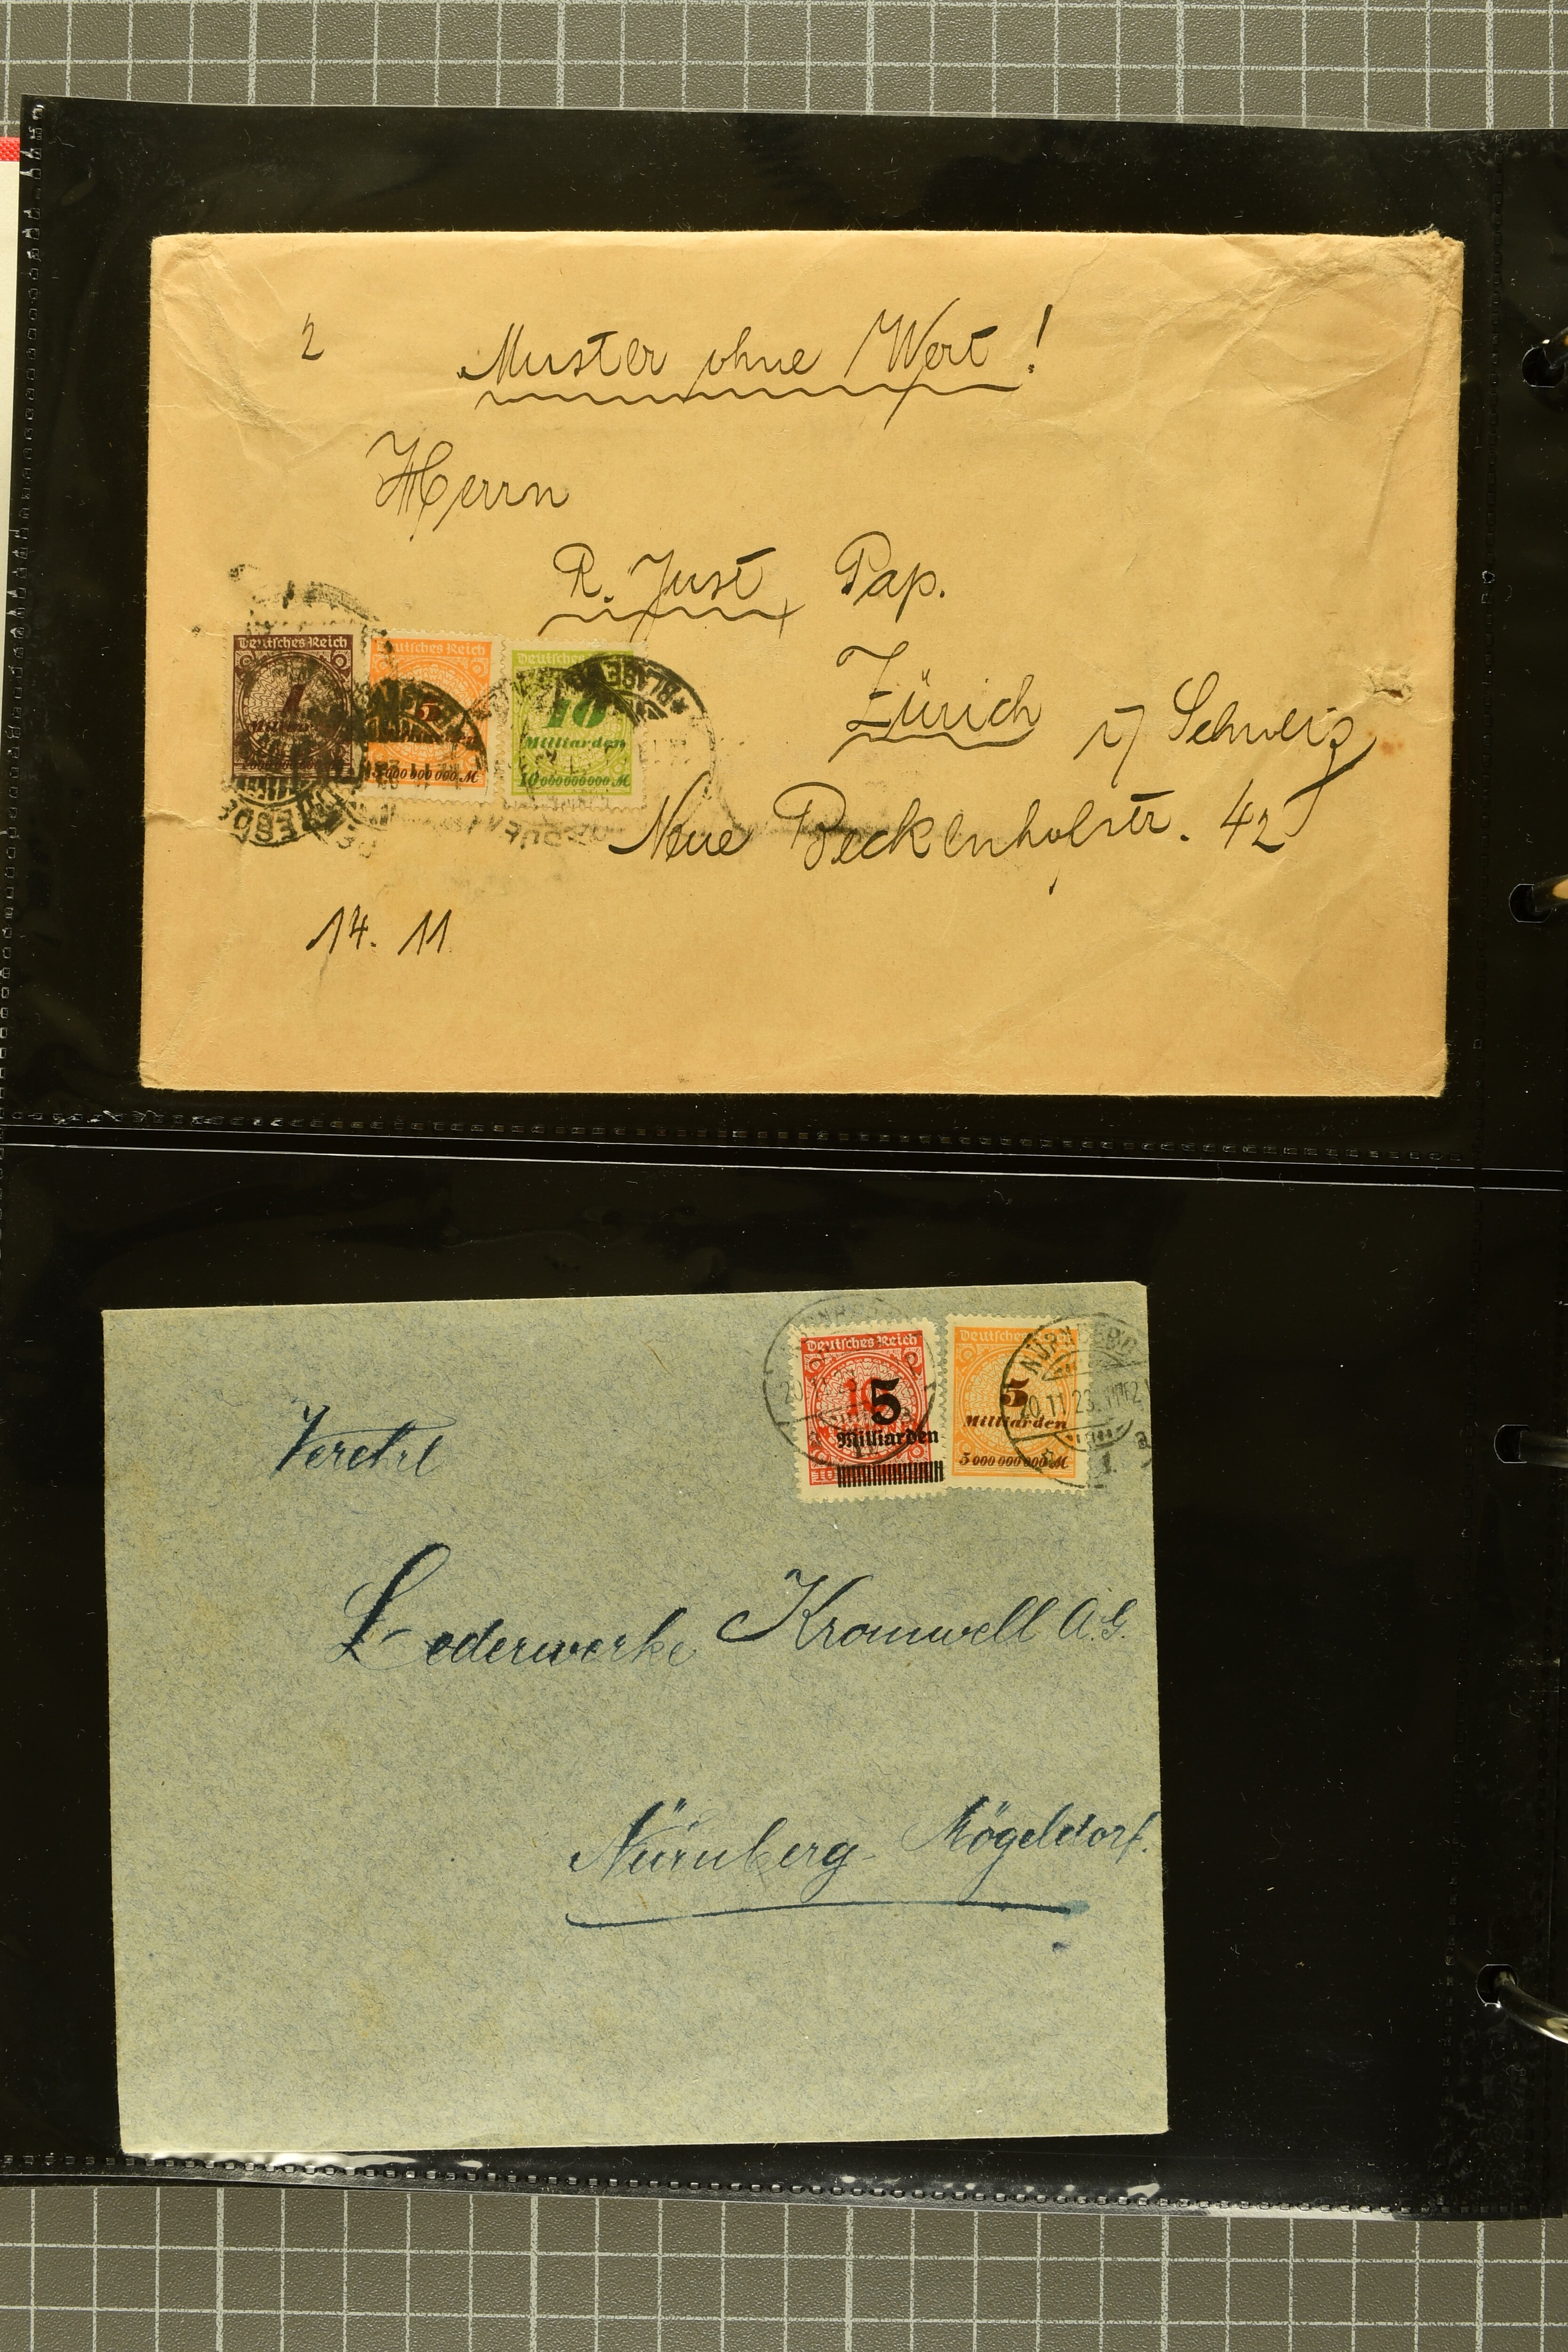 2
Muster ohne Wert!
Herrn
R. Just Pap.
Zürich i/ Schweiz
Neue Beckenhofstr. 42
14. 11
Deutsches Reich
1
Deutsches Reich
5
5 000 000 000 M
Deutsches
10
Milliarden
10 000 000 000 M
Deutsches Reich
5
Milliarden
Deutsches Reich
5
Milliarden
5 000 000 000 M
NÜRNBERG
20.11.23.
Verehrl
Lederwerke Kromwell A.G.
Nürnberg-Mögeldorf.